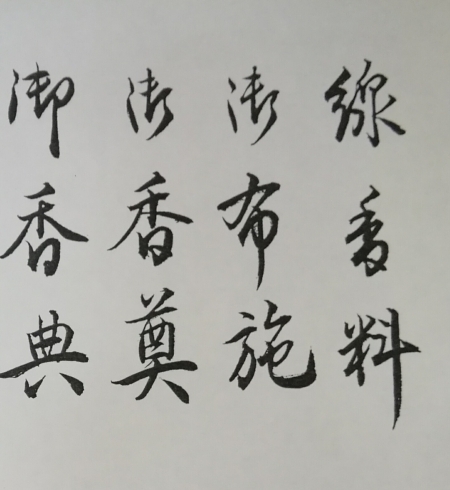 線香料
御布施
御香奠
御香典